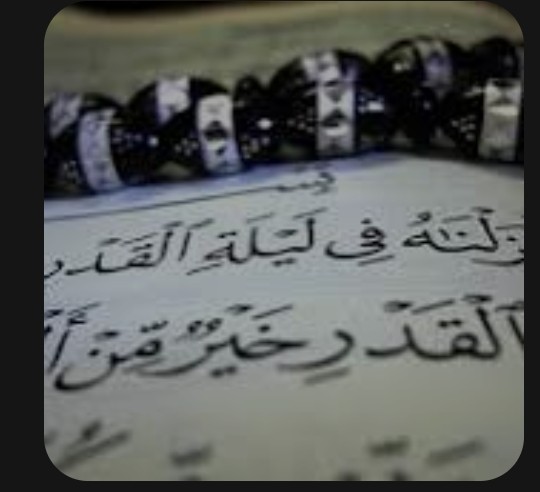 زَلْنَٰهُ فِى لَيْلَةِ ٱلْقَدْرِ
ٱلْقَدْرِ خَيْرٌ مِّنْ أَلْ